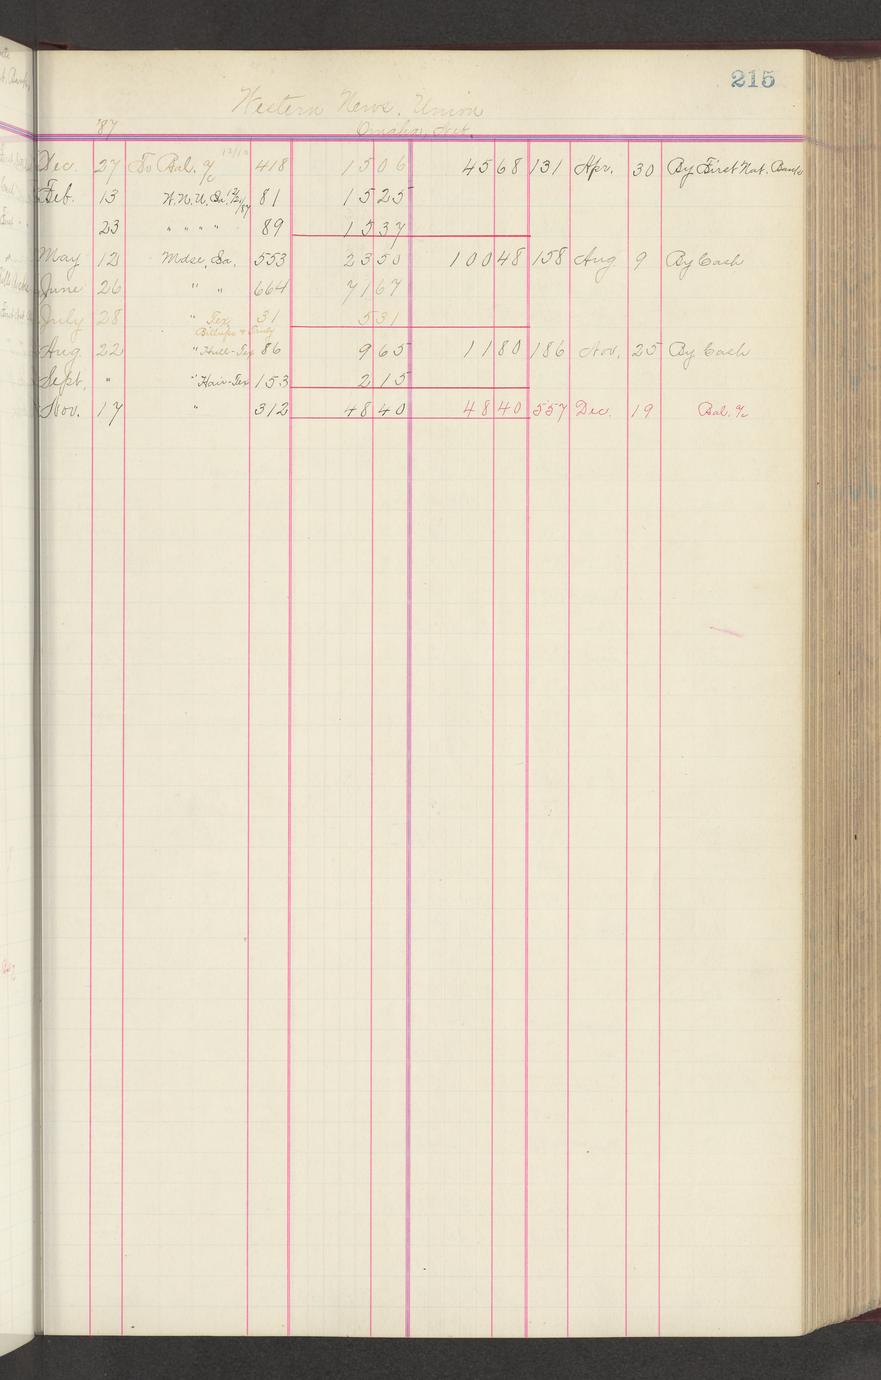 215
Western News. Union
'87 Omaha, Neb.
Dec. 27 To Bal. a/c 12/10 418 15 06 45 68 131 Apr. 30 By First Nat. Bank
Feb. 13 W.N.U. 81 15 25
23 " " " " 89 15 37
May 12 Mdse, Ia, 553 23 50 100 48 158 Aug 9 By Cash
June 26 " " 664 71 67
July 28 " Tex 31 5 31
Aug. 22 " Hull-Tex 86 9 65 11 80 186 Nov, 25 By Cash
Sept, " " Hair-Tex 153 2 15
Nov. 17 " 312 48 40 48 40 557 Dec. 19 Bal. a/c